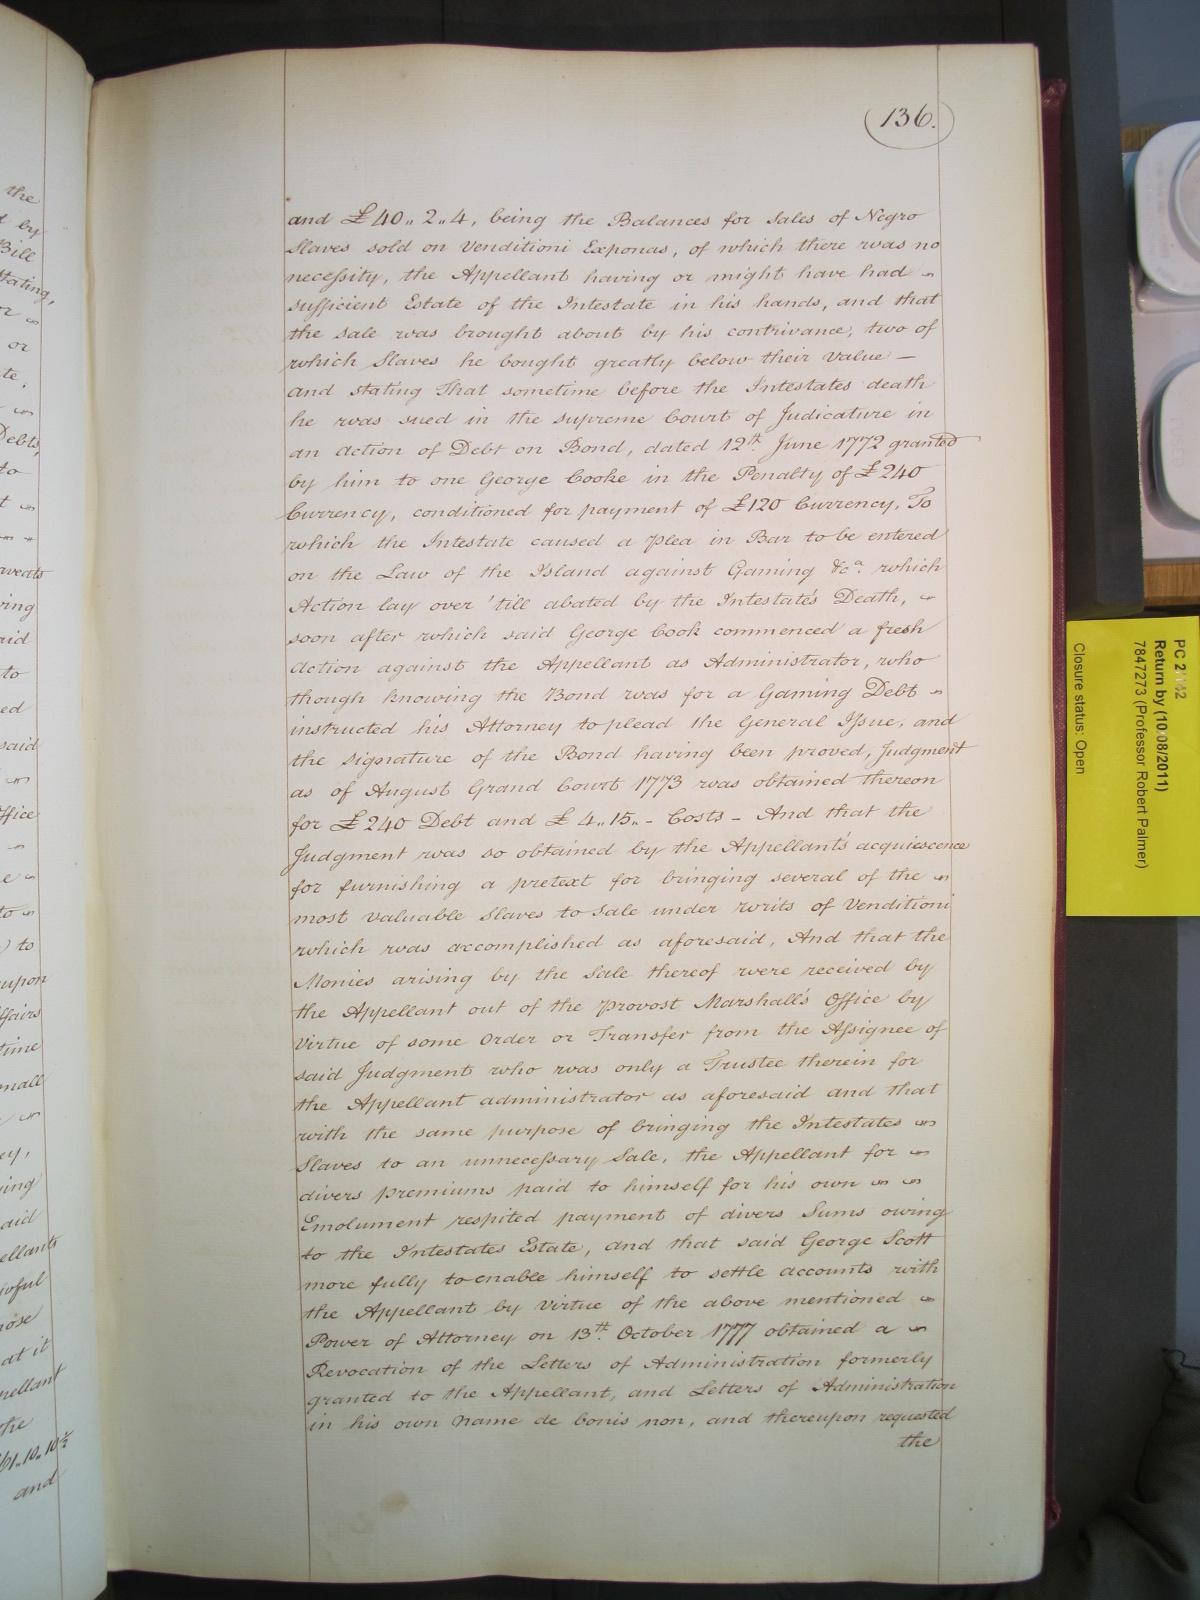 (136.)
and £40,, 2,, 4, being the Balances for Sales of Negro
Slaves sold on Venditioni Exponas, of which there was no
necessity, the Appellant having or might have had
sufficient Estate of the Intestate in his hands, and that
the sale was brought about by his contrivance, two of
which Slaves he bought greatly below their value —
and stating That sometime before the Intestates death
he was sued in the supreme Court of Judicature in
an action of Debt on Bond, dated 12th. June 1772 granted
by him to one George Cooke in the Penalty of £240
Currency, conditioned for payment of £120 Currency, To
which the Intestate caused a Plea in Bar to be entered
on the Law of the Island against Gaming &ca. which
Action lay over 'till abated by the Intestate's Death,
soon after which said George Cook commenced a fresh
action against the Appellant as Administrator, who
though knowing the Bond was for a Gaming Debt
instructed his Attorney to plead the General Issue, and
the signature of the Bond having been proved, Judgment
as of August Grand Court 1773 was obtained thereon
for £240 Debt and £4,,15,,- Costs - And that the
Judgment was so obtained by the Appellant's acquiescence
for furnishing a pretext for bringing several of the
most valuable Slaves to Sale under writs of Venditioni
which was accomplished as aforesaid, And that the
Monies arising by the Sale thereof were received by
the Appellant out of the Provost Marshall's Office by
Virtue of some Order or Transfer from the Assignee of
said Judgment who was only a Trustee therein for
the Appellant administrator as aforesaid and that
with the same purpose of bringing the Intestates
Slaves to an unnecessary Sale, the Appellant for
divers premiums paid to himself for his own
Emolument respited payment of divers Sums owing
to the Intestates Estate, and that said George Scott
more fully to enable himself to settle accounts with
the Appellant by Virtue of the above mentioned
Power of Attorney on 13th. October 1777 obtained a
Revocation of the Letters of Administration formerly
granted to the Appellant, and Letters of Administration
in his own Name de bonis non, and thereupon requested
the
PC 2/142
Return by (10/08/2011)
7847273 (Professor Robert Palmer)
Closure status: Open